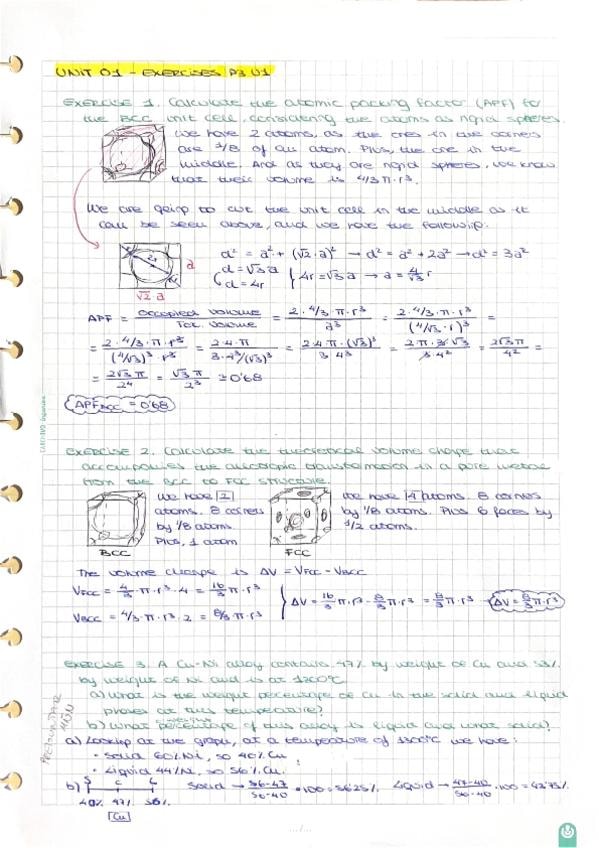 UNIT 01 - EXERCISES P3 U1
EXERCISE 1. Calculate the atomic packing factor (APF) to
the BCC unit cell, considering the atoms as rigid spheres.
We have 2 atoms, as the ones in the corners
are 1/8 of an atom. Plus, the one in the
middle. And as they are rigid spheres, we know
that their volume is 4/3·π·r³.
We are going to cut the unit cell in the middle as it
can be seen above, and we have the following:
a
√2·a
d² = a² + (√2·a)² → d² = a² + 2a² → d² = 3a²
d = √3 a
d = 4r
4r = √3 a → a = 4/√3 r
APF = occupied volume / Tot. volume = 2·4/3·π·r³ / a³ = 2·4/3·π·r³ / (4/√3·r)³ =
= 2·4/3·π·r³ / (4/√3)³·r³ = 2·4·π / 3·4³/(√3)³ = 2·4·π·(√3)³ / 3·4³ = 2π·3√3 / 3·4² = 2√3π / 4² =
= 2√3π / 2⁴ = √3π / 2³ ≅ 0'68
APF BCC = 0'68
EXERCISE 2. Calculate the theoretical volume change that
accompanies the allotropic transformation in a pure metal
from the BCC to FCC structure.
We have 2
atoms. 8 corners
by 1/8 atoms.
Plus, 1 atom
BCC
We have 4 atoms. 8 corners
by 1/8 atoms. Plus 6 faces by
1/2 atoms.
FCC
The volume change is ΔV = VFCC - VBCC
VFCC = 4/3·π·r³·4 = 16/3 π·r³
VBCC = 4/3·π·r³·2 = 8/3 π·r³
ΔV = 16/3 π·r³ - 8/3 π·r³ = 8/3 π·r³ → ΔV = 8/3 π·r³
EXERCISE 3. A Cu-Ni alloy contains 47% by weight of Cu and 53%
by weight of Ni and is at 1300ºC
a) What is the weight percentage of Cu in the solid and liquid
phases at this temperature?
b) What weight percentage of this alloy is liquid and what solid?
a) Looking at the graph, at a temperature of 1300ºC we have:
· Solid 60% Ni, so 40% Cu.
· Liquid 44% Ni, so 56% Cu.
b) S C L
40% 47% 56%
Cu
Solid → 56-47 / 56-40 · 100 = 56'25% Liquid → 47-40 / 56-40 · 100 = 43'75%